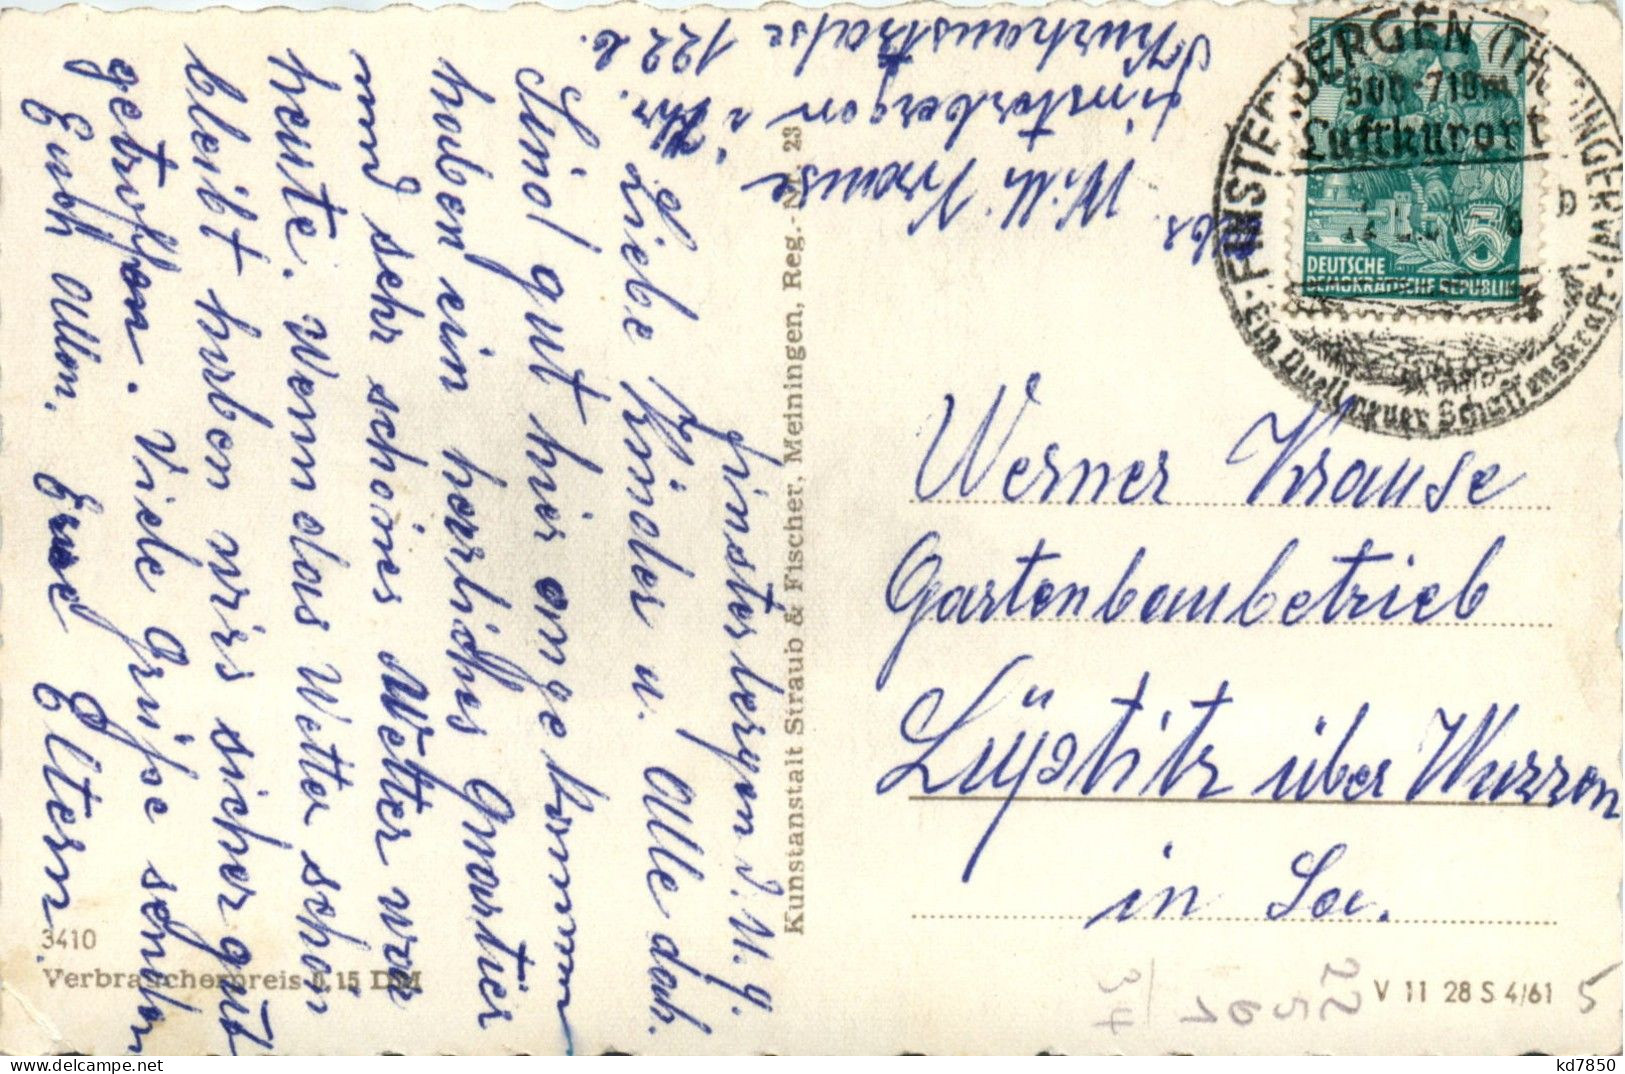 Abs.
Willi Krause
Finsterbergen i. Thr.
Kurhausstraße 122 b.
Finsterbergen d. 11. 9.
Liebe Kinder u. Alle dah.
Sind gut hier angekommen
haben ein herliches Quartier
und sehr schönes Wetter war
heute. Wenn das Wetter schön
bleibt haben wirs sicher gut
getroffen. Viele Grüße senden
Euch Allen, Eure Eltern.
3410
Verbraucherpreis 0,15 DM
Kunstanstalt Straub & Fischer, Meiningen, Reg.-Nr. 23
FINSTERBERGEN (THÜRINGER W)
500-710m
Luftkurort
b
Ein Quell neuer Schaffenskraft
5
DEUTSCHE
DEMOKRATISCHE REPUBLIK
Werner Krause
Gartenbaubetrieb
Lüptitz über Wurzen
in Sa.
V 11 28 S 4/61
22501
34
5
kd7850